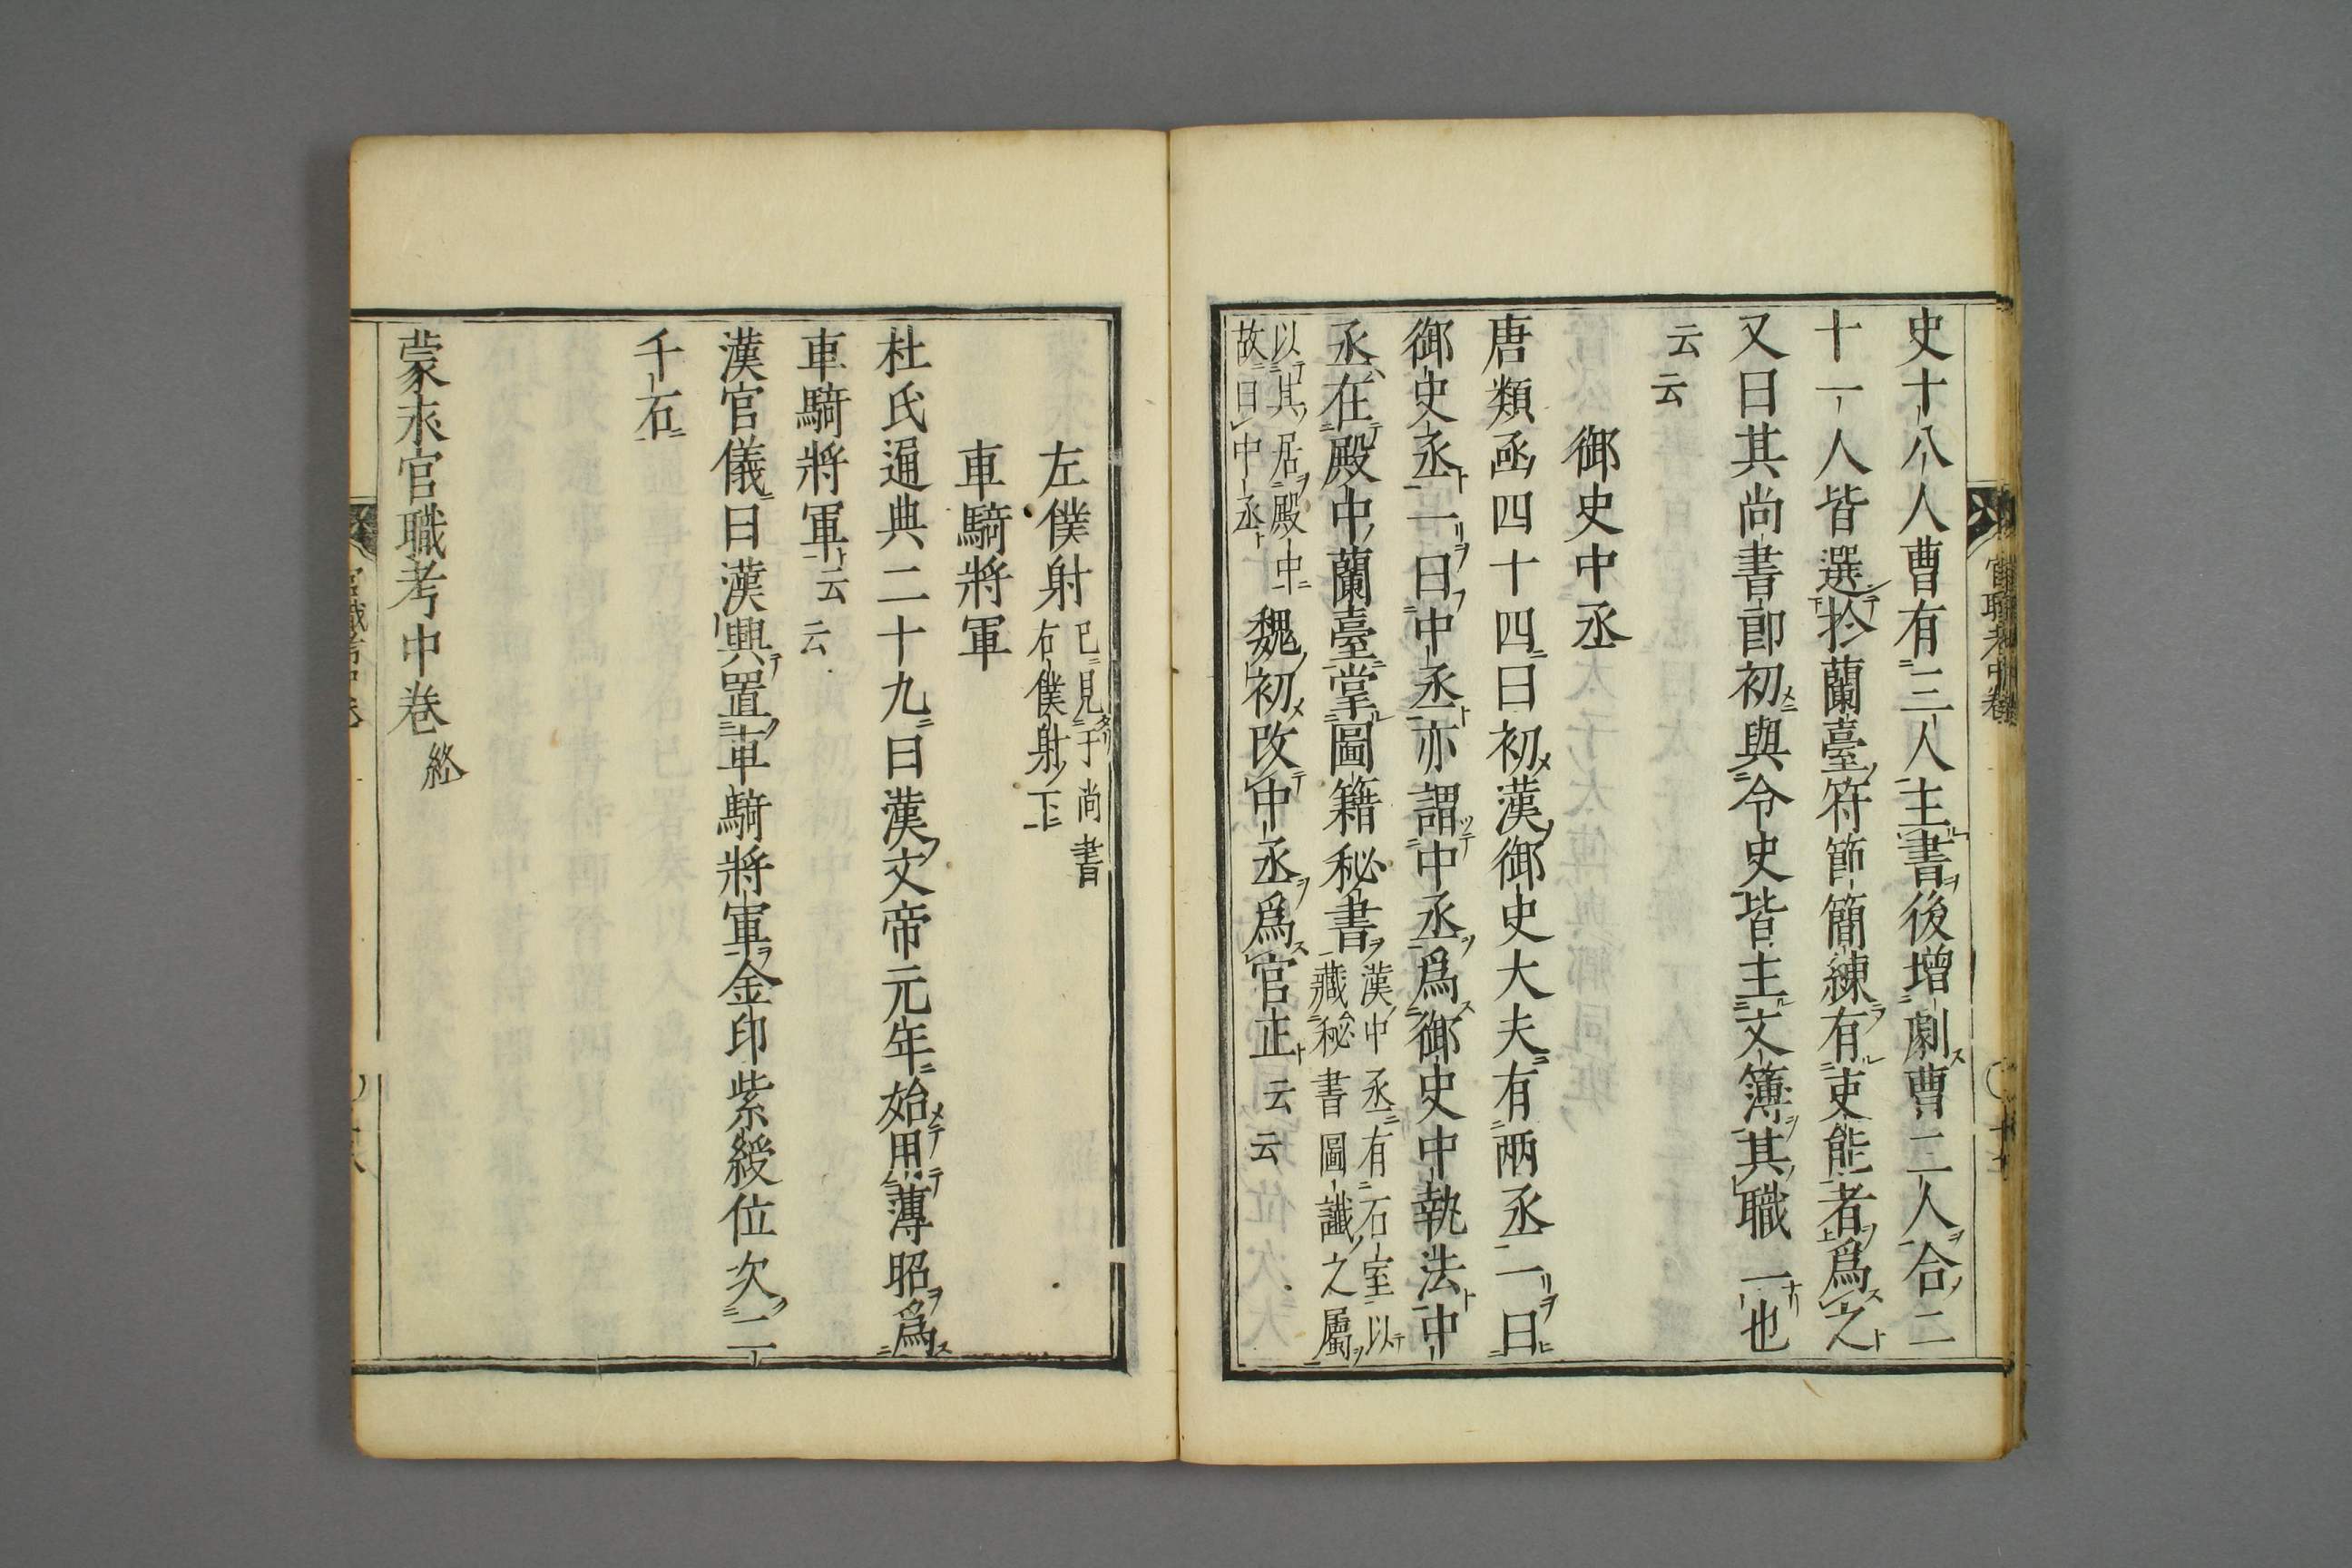 史十八人曹有三人主書後增劇曹二人合二
十一人皆選於蘭臺符節簡練有吏能者爲之
又曰其尚書郎初與令史皆主文簿其職一也
云云
御史中丞
唐類函四十四曰初漢御史大夫有兩丞一曰
御史丞一曰中丞亦謂中丞爲御史中執法中
丞在殿中蘭臺掌圖籍秘書
漢中丞有石室以
藏秘書圖讖之屬
以其居殿中
故曰中丞
魏初改中丞爲官正云云
左僕射
已見于尚書
右僕射下
車騎將軍
杜氏通典二十九曰漢文帝元年始用薄昭爲
車騎將軍云云
漢官儀曰漢興置車騎將軍金印紫綬位次二
千石
蒙求官職考中巻終